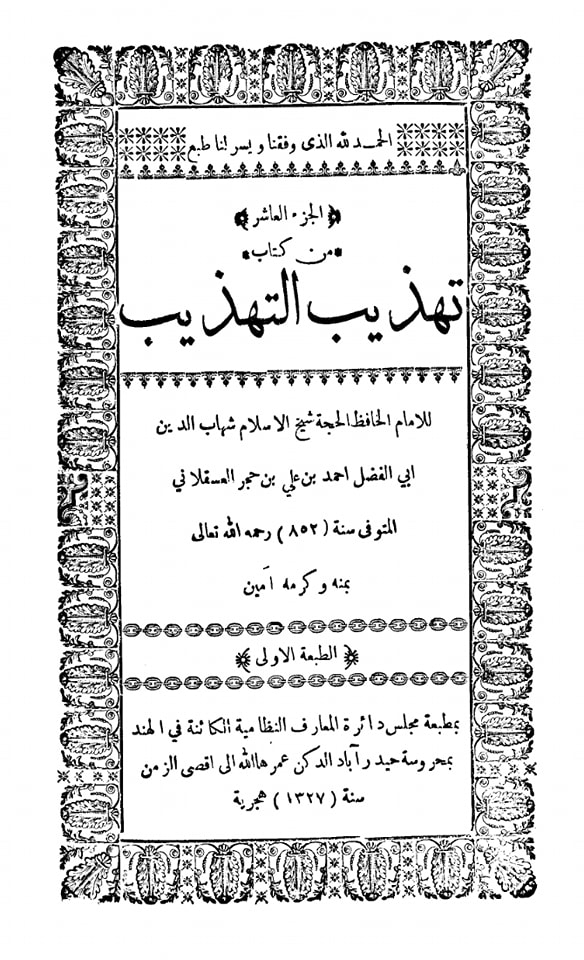 الحمد لله الذى وفقنا ويسر لنا طبع
الجزء العاشر
من كتاب
تهذيب التهذيب
للامام الحافظ الحجة شيخ الاسلام شهاب الدين
ابي الفضل احمد بن علي بن حجر العسقلاني
المتوفى سنة (٨٥٢) رحمه الله تعالى
بمنه وكرمه آمين
الطبعة الاولى
بمطبعة مجلس دائرة المعارف النظامية الكائنة في الهند
بمحروسة حيدرآباد الدكن عمرها الله الى اقصى الزمن
سنة (١٣٢٧) هجرية